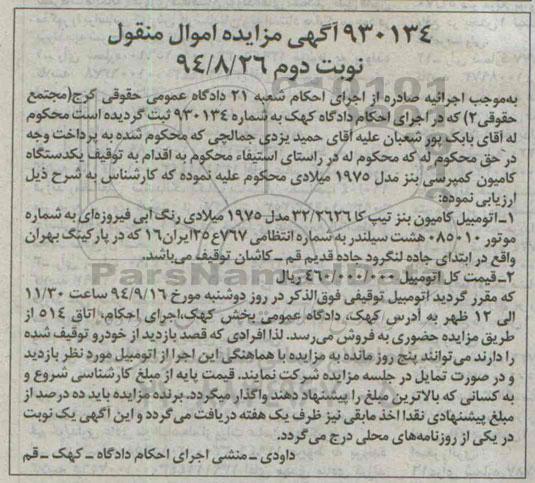 ۹۳۰۱۳۴آگهی مزایده اموال منقول
نوبت دوم ۹۴/۸/۲۶
به‌موجب اجرائیه صادره از اجرای احکام شعبه ۲۱ دادگاه عمومی حقوقی کرج(مجتمع
حقوقی۲) که در اجرای احکام دادگاه کهک به شماره ۹۳۰۱۳۴ ثبت گردیده است محکوم
له آقای بابک پور شعبان علیه آقای حمید یزدی جمالچی که محکوم شده به پرداخت وجه
در حق محکوم له که محکوم له در راستای استیفاء محکوم به اقدام به توقیف یکدستگاه
کامیون کمپرسی بنز مدل ۱۹۷۵ میلادی محکوم علیه نموده که کارشناس به شرح ذیل
ارزیابی نموده:
۱-اتومبیل کامیون بنز تیپ کا ۳۲/۲۶۲۶ مدل ۱۹۷۵ میلادی رنگ آبی فیروزه‌ای به شماره
موتور ۰۸۵۰۱۰ هشت سیلندر به شماره انتظامی ۷۶۷ع۳۵ایران۱۶ که در پارکینگ بهران
واقع در ابتدای جاده لنگرود جاده قدیم قم ـ کاشان توقیف می‌باشد.
۲-قیمت کل اتومبیل ۴۶۰/۰۰۰/۰۰۰ ریال
که مقرر گردید اتومبیل توقیفی فوق‌الذکر در روز دوشنبه مورخ ۹۴/۹/۱۶ ساعت ۱۱/۳۰
الی ۱۲ ظهر به آدرس کهک، دادگاه عمومی بخش کهک،اجرای احکام، اتاق ۵۱۴ از
طریق مزایده حضوری به فروش می‌رسد. لذا افرادی که قصد بازدید از خودرو توقیف شده
را دارند می‌توانند پنج روز مانده به مزایده با هماهنگی این اجرا از اتومبیل مورد نظر بازدید
و در صورت تمایل در جلسه مزایده شرکت نمایند. قیمت پایه از مبلغ کارشناسی شروع و
به کسانی که بالاترین مبلغ را پیشنهاد دهند واگذار میگردد. برنده مزایده باید ده درصد از
مبلغ پیشنهادی نقدا اخذ مابقی نیز ظرف یک هفته دریافت می‌گردد و این آگهی یک نوبت
در یکی از روزنامه‌های محلی درج می‌گردد.
داودی ـ منشی اجرای احکام دادگاه ـ کهک ـ قم
ParsNamadData